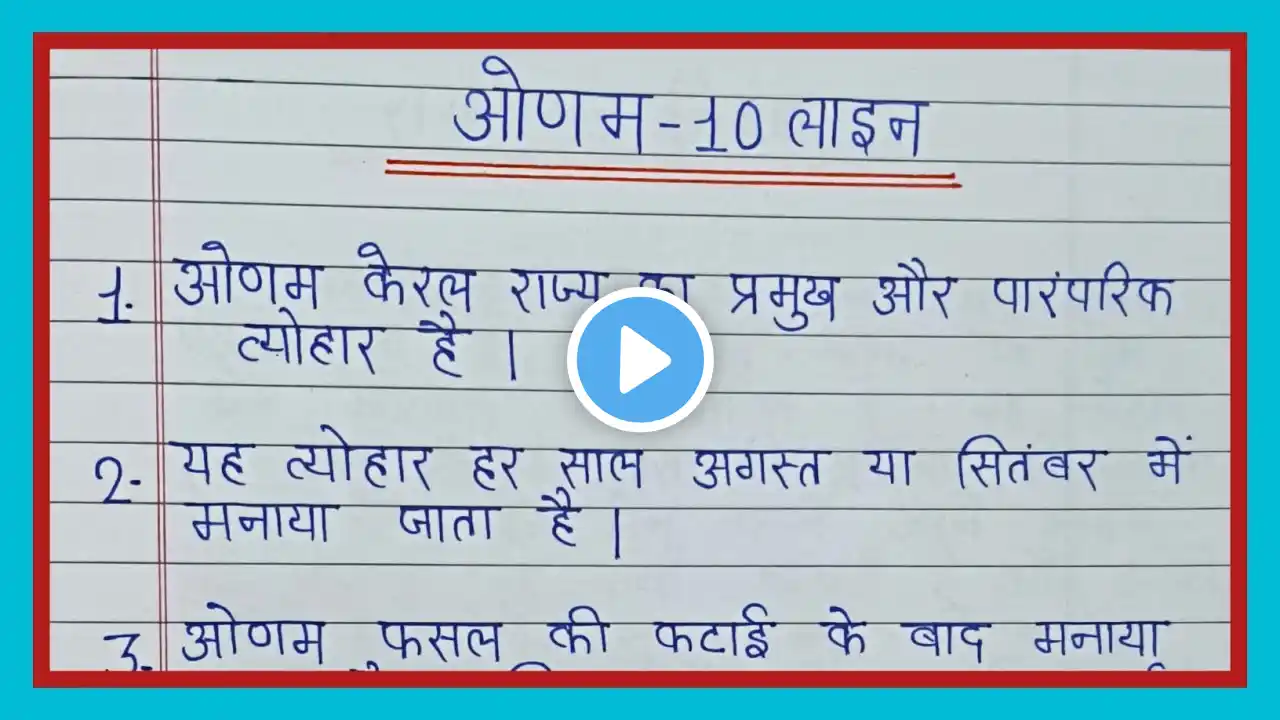 ओणम - 10 लाइन
1. ओणम केरल राज्य का प्रमुख और पारंपरिक
त्योहार है।
2. यह त्योहार हर साल अगस्त या सितंबर में
मनाया जाता है।
3. ओणम फसल की कटाई के बाद मनाया